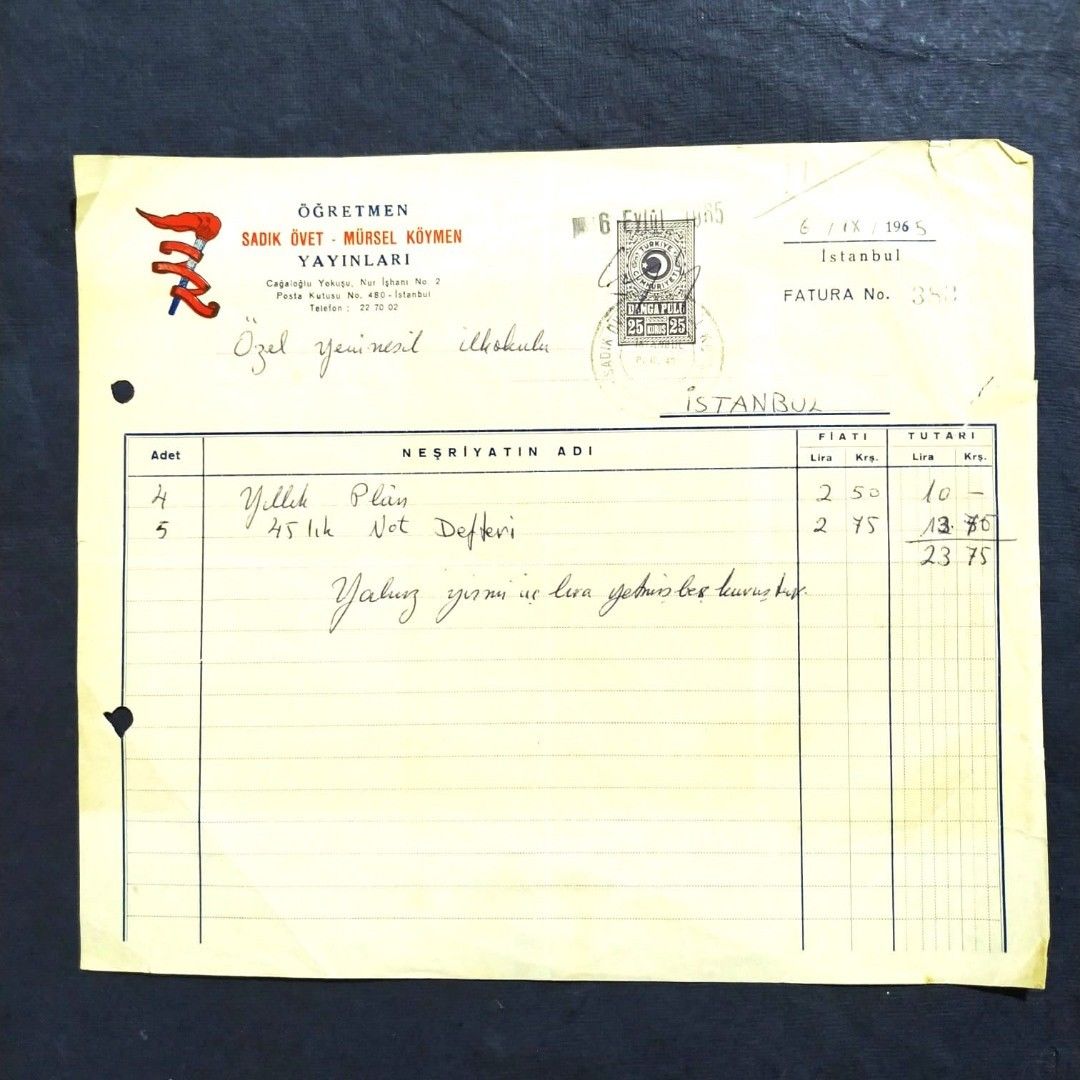 ÖĞRETMEN
SADIK ÖVET - MÜRSEL KÖYMEN
YAYINLARI
Cağaloğlu Yokuşu, Nur İşhanı No. 2
Posta Kutusu No. 480 - İstanbul
Telefon : 22 70 02
6 Eylül 1965
TÜRKİYE
CUMHURİYETİ
DAMGA PULU
25 KURUŞ 25
SADIK
6 / IX / 1965
İstanbul
FATURA No.
Özel yeni nesil ilkokulu
İSTANBUL
Adet NEŞRİYATIN ADI FİATI TUTARI
Lira Krş. Lira Krş.
4 Yıllık Plân 2 50 10 -
5 45 lik Not Defteri 2 75 13. 75
23 75
Yalnız yirmi üç lira yetmiş beş kuruştur.